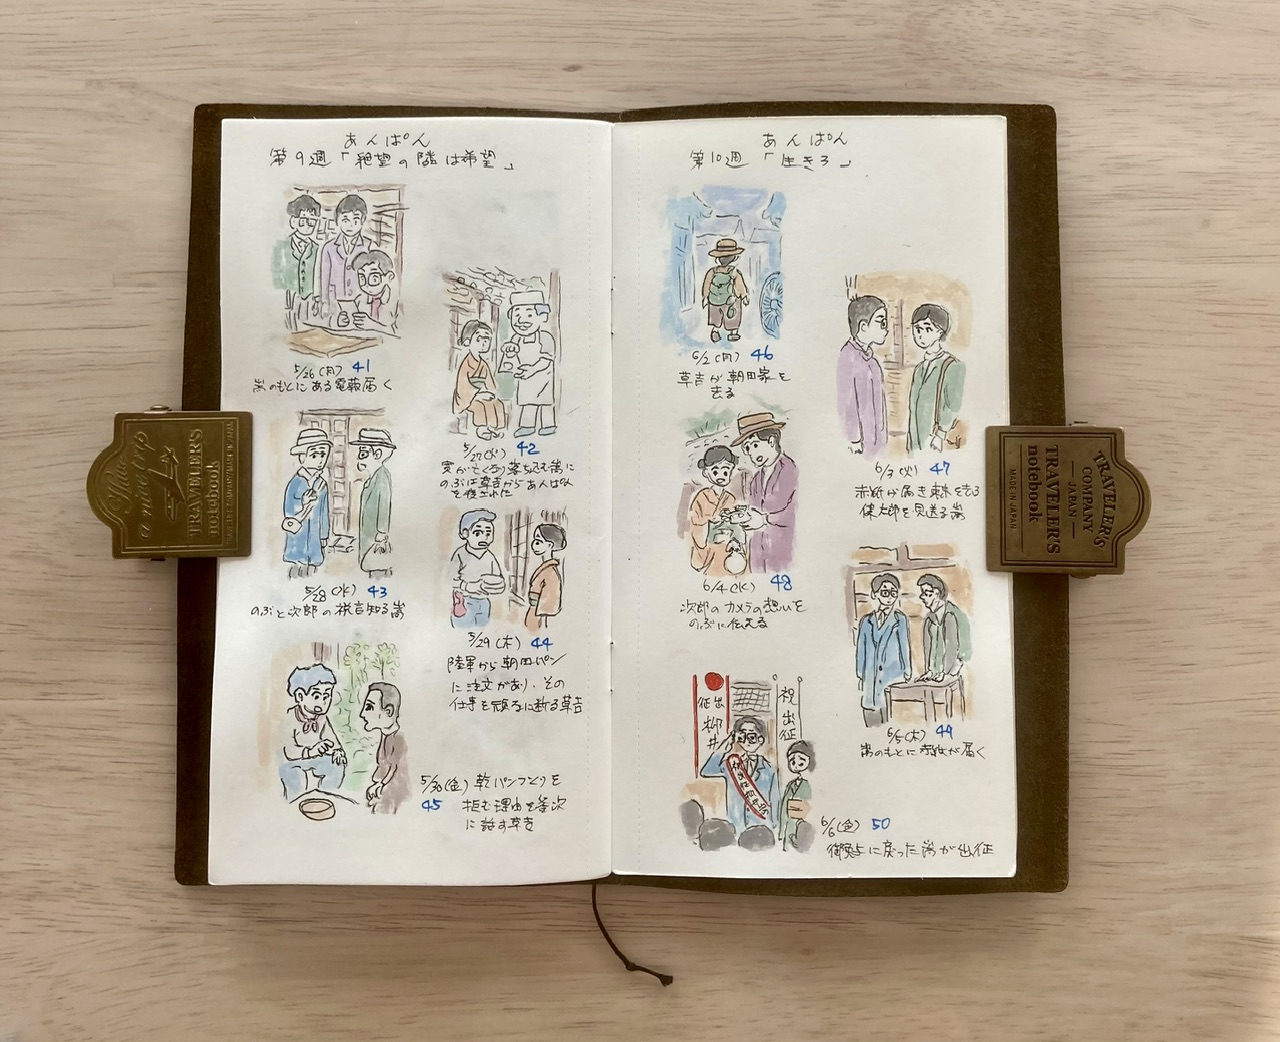 あんぱん
第9週「絶望の隣は希望」
5/26(月) 41
嵩のもとにある電報届く
5/27(火) 42
寛が亡くなり落ち込む嵩に
のぶは草吉からあんぱん
を
5/28(水) 43
のぶと次郎の祝言知る嵩
5/29(木) 44
陸軍から朝田パン
に注文があり、その
仕事を頑なに断る草吉
5/30(金) 乾パンつくりを
45 拒む理由を釜次
に話す草吉
あんぱん
第10週「生きろ」
6/2(月) 46
草吉が朝田家を
去る
6/3(火) 47
赤紙が届き東京を去る
健太郎を見送る嵩
6/4(水) 48
次郎のカメラの想いを
のぶに伝える
6/5(木) 49
嵩のもとに赤紙が届く
征出
柳井
祝出征
6/6(金) 50
御免与に戻った嵩が出征
a nice trip
TRAVELER'S
notebook
TRAVELER'S
COMPANY
JAPAN
TRAVELER'S
notebook
MADE IN JAPAN